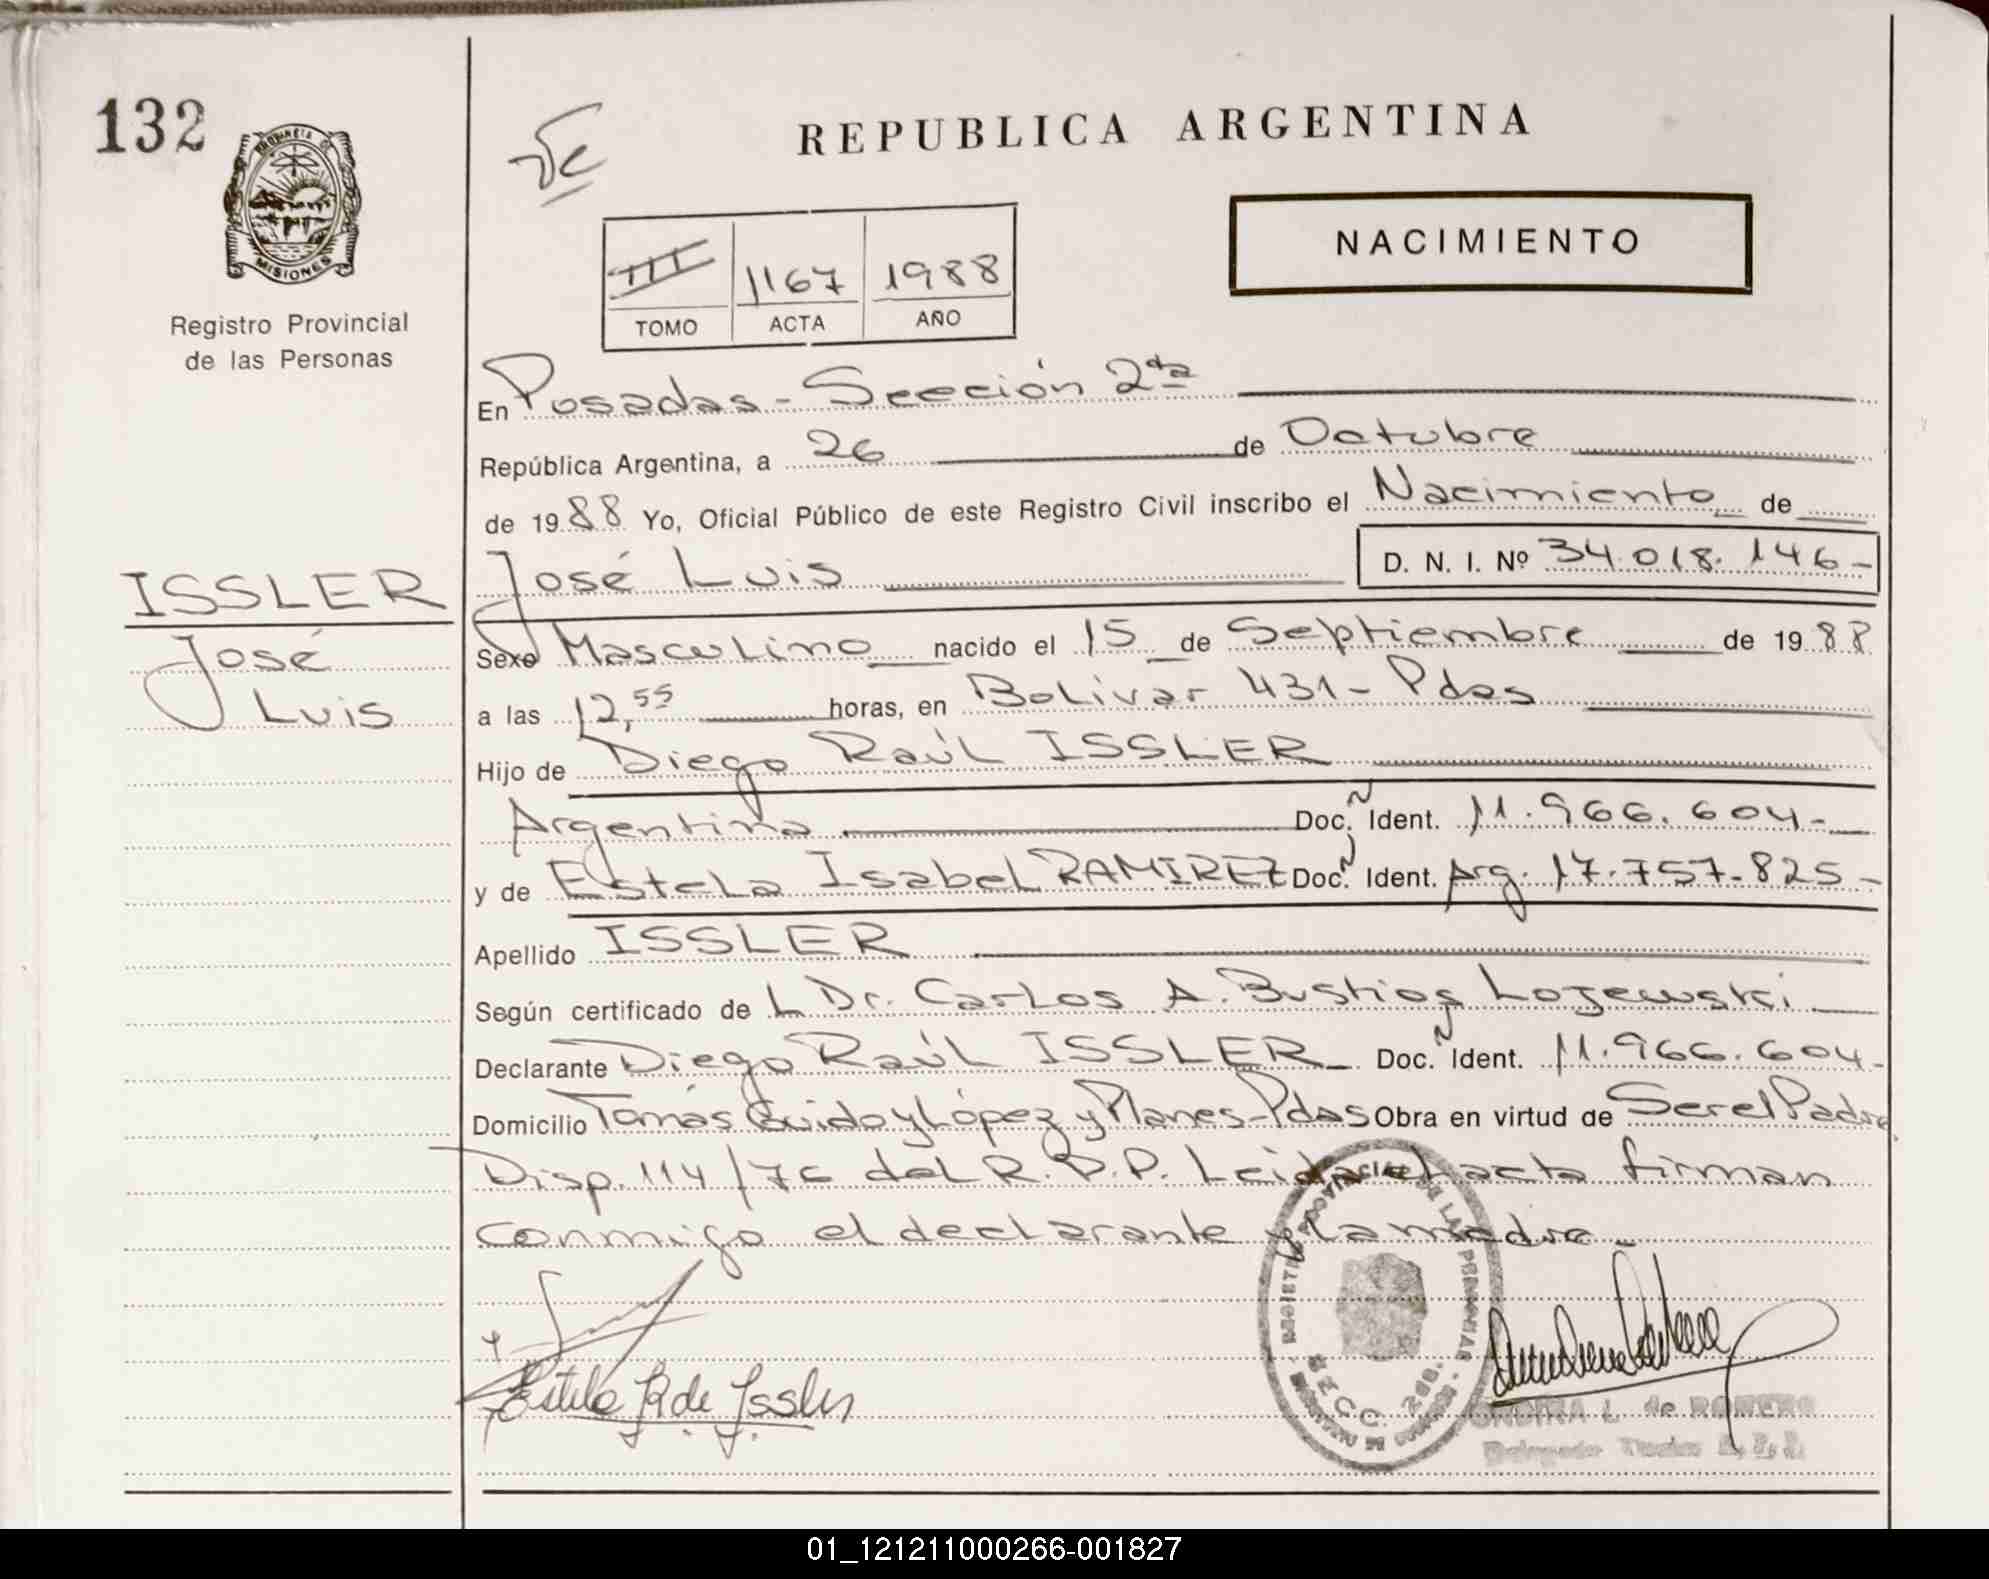 132
PROVINCIA
MISIONES
Registro Provincial
de las Personas
REPUBLICA ARGENTINA
NACIMIENTO
III 1167 1988
TOMO ACTA AÑO
En Posadas - Sección 2da
República Argentina, a 26 de Octubre
de 1988 Yo, Oficial Público de este Registro Civil inscribo el Nacimiento de
ISSLER
José
Luis
José Luis D. N. I. Nº 34.018.146-
Sexo Masculino nacido el 15 de Septiembre de 1988
a las 12,55 horas, en Bolivar 431 - Pdas
Hijo de Diego Raúl ISSLER
Argentino Doc. Ident. 11.966.604-
y de Estela Isabel RAMIREZ Doc. Ident. Arg. 17.757.825-
Apellido ISSLER
Según certificado de L Dr. Carlos A. Bustios Lojewski
Declarante Diego Raúl ISSLER Doc. Ident. 11.966.604-
Domicilio Tomás Guido y López y Planes - Pdas Obra en virtud de Ser el Padre
Disp. 114/76 del R.P.P. Leida el acta firman
conmigo el declarante y la madre.-
Estela R de Issler
SECC. 2da.
ONDINA L. de ROMERO
01_121211000266-001827